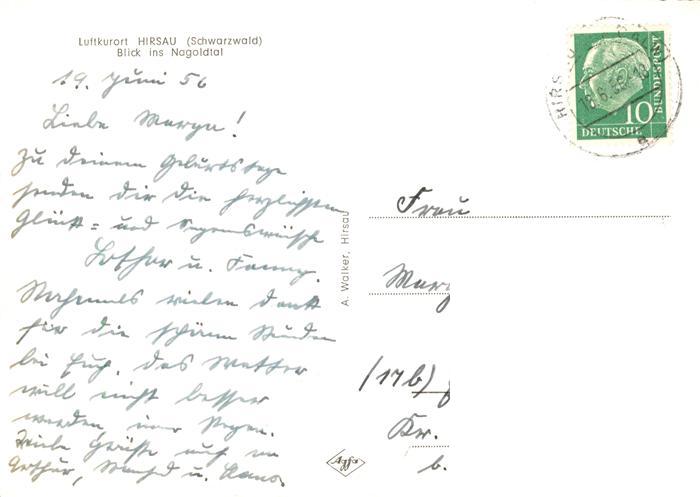 Luftkurort HIRSAU (Schwarzwald)
Blick ins Nagoldtal
19. Juni 56
Liebe Marga!
Zu deinem Geburtstage
senden dir die herzlichsten
Glück= und Segenswünsche
Lothar u. Fanny.
Nochmals vielen Dank
für die schönen Stunden
bei Euch. das Wetter
will nicht besser
werden, immer Regen.
Viele Grüße auch an
Arthur, u. Hans.
A. Walker, Hirsau
Agfa
HIRS
18.6.56.-18
10
DEUTSCHE
BUNDESPOST
Frau
Marg
(17b)
Kr.
b.